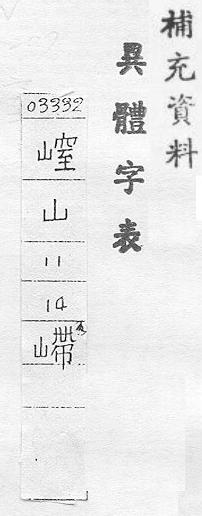 補充資料
異體字表
03332
山
11
14
嵽